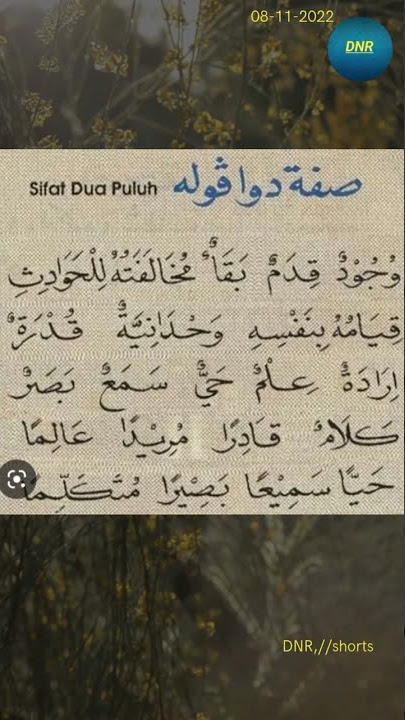 08-11-2022
DNR
Sifat Dua Puluh صفة دوا ڤوله
وُجُوْدٌ قِدَمٌ بَقَاءٌ مُخَالَفَتُهُ لِلْحَوَادِثِ
قِيَامُهُ بِنَفْسِهِ وَحْدَانِيَّةٌ قُدْرَةٌ
اِرَادَةٌ عِلْمٌ حَيٌّ سَمَعٌ بَصَرٌ
كَلَامٌ قَادِرًا مُرِيْدًا عَالِمًا
حَيًّا سَمِيْعًا بَصِيْرًا مُتَكَلِّمًا
DNR,//shorts